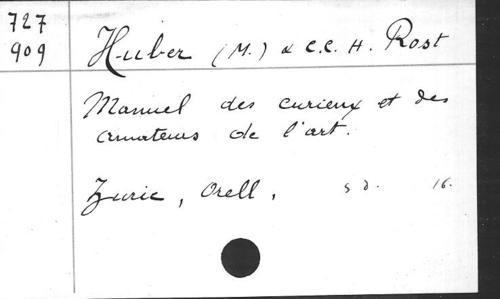 727
909
Huber (M.) & C.C.H. Rost
Manuel des curieux et des
amateurs de l'art.
Zuric, Orell, s d. 16.